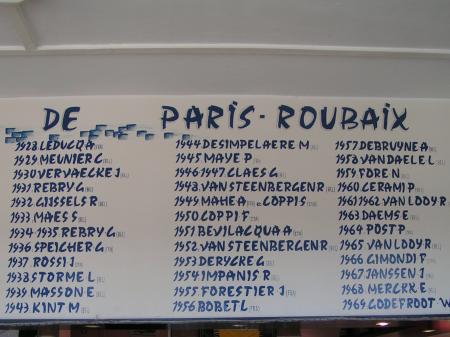 DE PARIS-ROUBAIX
1928 LEDUCQ A
1929 MEUNIER G
1930 VERVAECKE J
1931 REBRY G
1932 GIJSSELS R
1933 MAES S
1934-1935 REBRY G
1936 SPEICHER G
1937 ROSSI J
1938 STORME L
1939 MASSON E
1943 KINT M
1944 DESIMPELAERE M
1945 MAYE P
1946 1947 CLAES G
1948 VAN STEENBERGEN R
1949 MAHE A e COPPI S
1950 COPPI F
1951 BEVILACQUA A
1952 VAN STEENBERGEN R
1953 DERYCKE G
1954 IMPANIS R
1955 FORESTIER J
1956 BOBET L
1957 DEBRUYNE A
1958 VANDAELE L
1959 FORE N
1960 CERAMI P
1961 1962 VAN LOOY R
1963 DAEMS E
1964 POST P
1965 VAN LOOY R
1966 GIMONDI F
1967 JANSSEN J
1968 MERCKX E
1969 GODEFROOT W